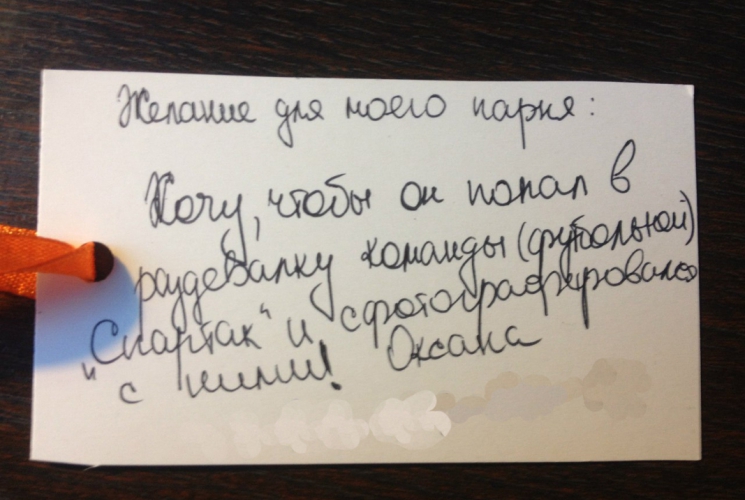 Желание для моего парня:
Хочу, чтобы он попал в
раздевалку команды (футбольной)
"Спартак" и сфотографировался
с ними! Оксана